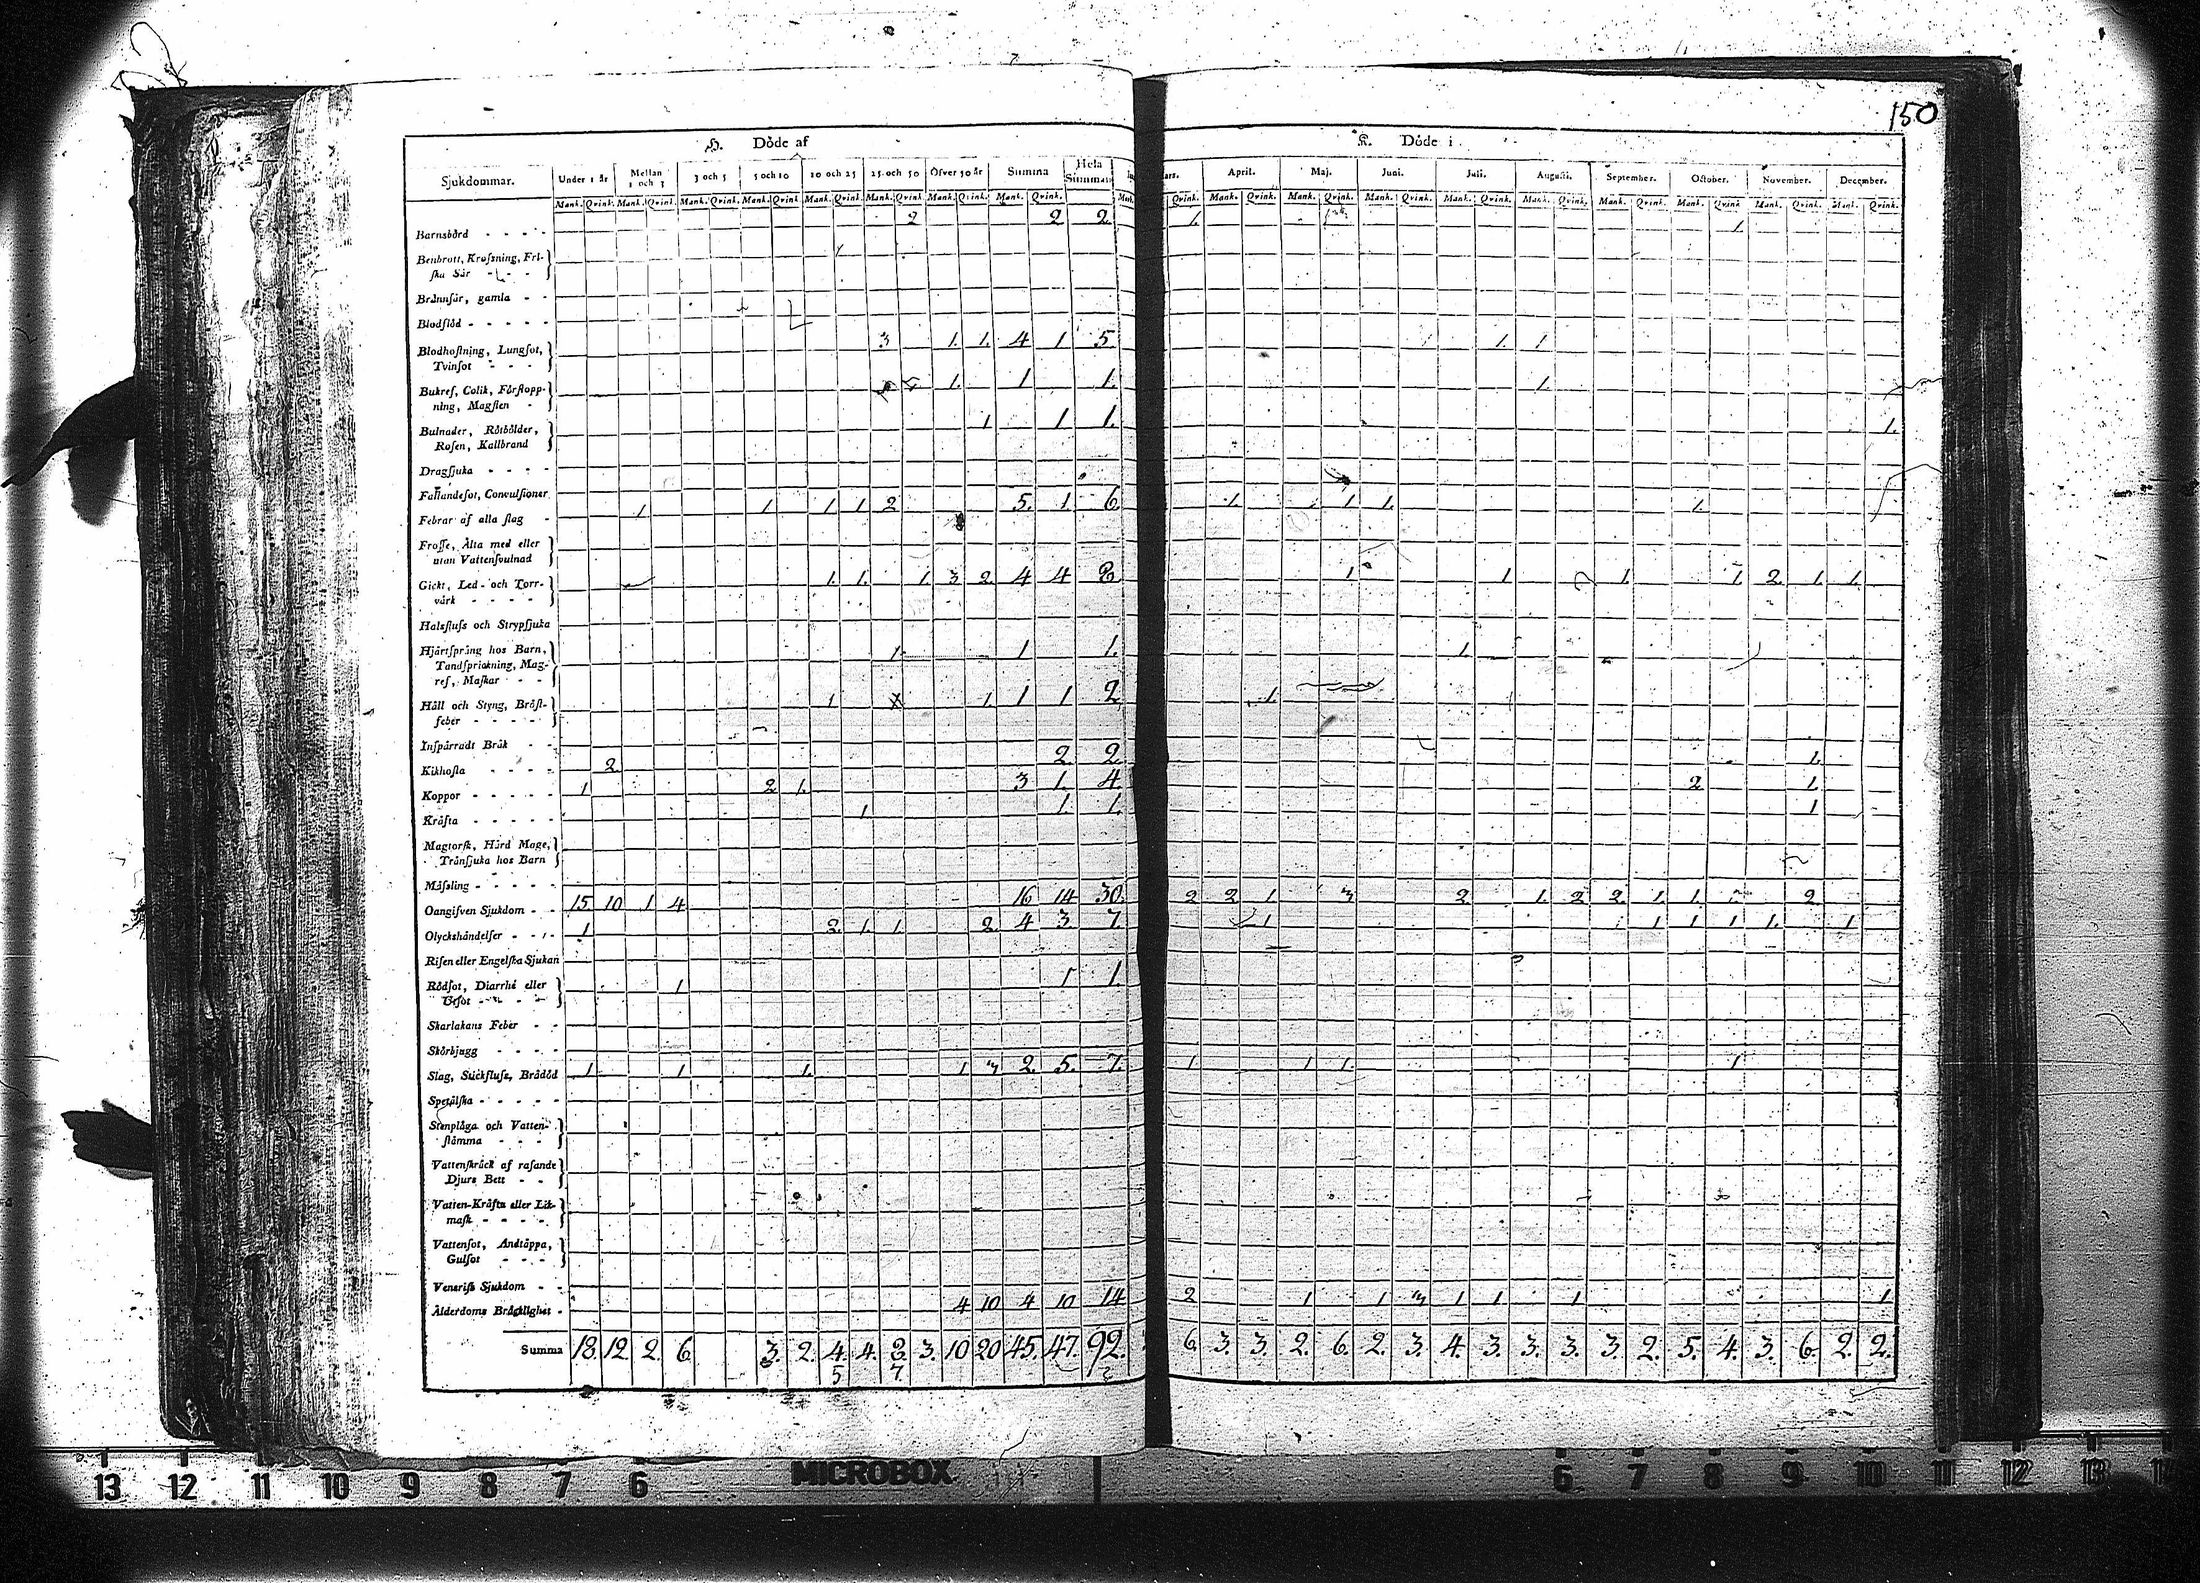 150
H. Döde af
K. Döde i
Sjukdommar. Under 1 år Mellan 1 och 3 3 och 5 5 och 10 10 och 25 25 och 50 Öfver 50 år Summa Hela Summan
April. Maj. Juni. Juli. Augusti. September. October. November. December.
Mank. Qvink. Mank. Qvink. Mank. Qvink. Mank. Qvink. Mank. Qvink. Mank. Qvink. Mank. Qvink. Mank. Qvink.
Qvink. Mank. Qvink. Mank. Qvink. Mank. Qvink. Mank. Qvink. Mank. Qvink. Mank. Qvink. Mank. Qvink. Mank. Qvink. Mank. Qvink.
Barnsbörd 2 2 2 1. 1.
Benbrott, Krossning, Fri-
ska Sår
Brännsår, gamla
Blodflöd
Blodhostning, Lungsot, 3 1. 1. 4 1 5. 1. 1
Tvinsot
Bukref, Colik, Förstopp- 1. 1 1. 1.
ning, Magsten
Bulnader, Rötbölder, 1 1 1. 1.
Rosen, Kallbrand
Dragsjuka
Fallandesot, Convulsioner
Febrar af alla slag 1 1 1 1 2 5. 1 6 1. 1 1. 1.
Frosse, Älta med eller
utan Vattensvulnad
Gickt, Led- och Torr- 1. 1. 1. 3 2. 4 4 8 1 1 1. 1. 2. 1. 1.
värk
Halsfluss och Strypsjuka
Hjärtsprång hos Barn, 1. 1 1. 1.
Tandsprickning, Mag-
ref, Maskar
Håll och Styng, Bröst- 1 1 1 1 2 1.
feber
Inspärradt Bråk
Kikhosta 2 2 2. 1.
Koppor 1 2 1. 3 1. 4. 2 1.
Kräfta 1 1. 1. 1
Magtorsk, Hård Mage,
Trånsjuka hos Barn
Mässling
Oangifven Sjukdom 15 10 1 4 16 14 30. 2 2 1 3 2 1. 2 2. 1. 1. 2
Olyckshändelser 1 2. 1. 1 2. 4 3. 7. 1 1 1 1 1. 1
Risen eller Engelska Sjukan
Rödsot, Diarrhé eller 1 1 1.
Skarlakans Feber
Skörbjugg
Slag, Stickfluss, Brådöd 1 1 1. 1 3 2. 5. 7. 1 1 1. 1
Spetälska
Stenplåga och Vatten-
stämma
Vattenskräck af rasande
Djurs Bett
Vatten-Kräfta eller Lik-
mask
Vattensot, Andtäppa,
Gulsot
Venerisk Sjukdom
Ålderdoms Bräcklighet 4 10 4 10 14 2 1 1 3 1 1 1 1
Summa 18. 12. 2. 6. 3. 2. 4. 4. 3. 10 20 45. 47. 92. 6. 3. 3. 2. 6. 2. 3. 4. 3. 3. 3. 3. 2. 5. 4. 3. 6. 2. 2.
5 7
13 12 11 10 9 8 7 6 MICROBOX 6 7 8 9 10 11 12 13 14